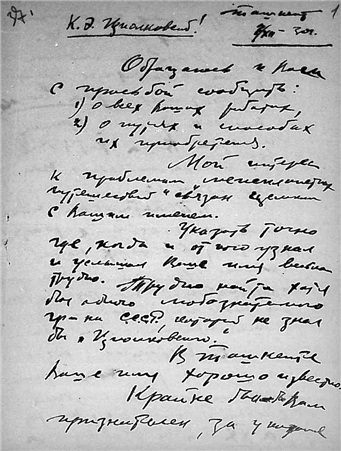 1
К. Э. Циолковский!
Ташкент
9/XII – 30 г.
Обращаюсь к Вам
с просьбой сообщить:
1) о всех Ваших работах,
2) о путях и способах
их приобретения.
Мой интерес
к проблемам межпланетных
путешествий связан
с Вашим именем.
Указать точно
где, когда и от кого узнал
и услышал Ваше имя
трудно. Трудно найти хотя
бы одного любознательного
гр-на СССР, который не знал
бы "Циолковского".
В Ташкенте
Ваше имя хорошо известно.
Крайне был бы Вам
признателен, за